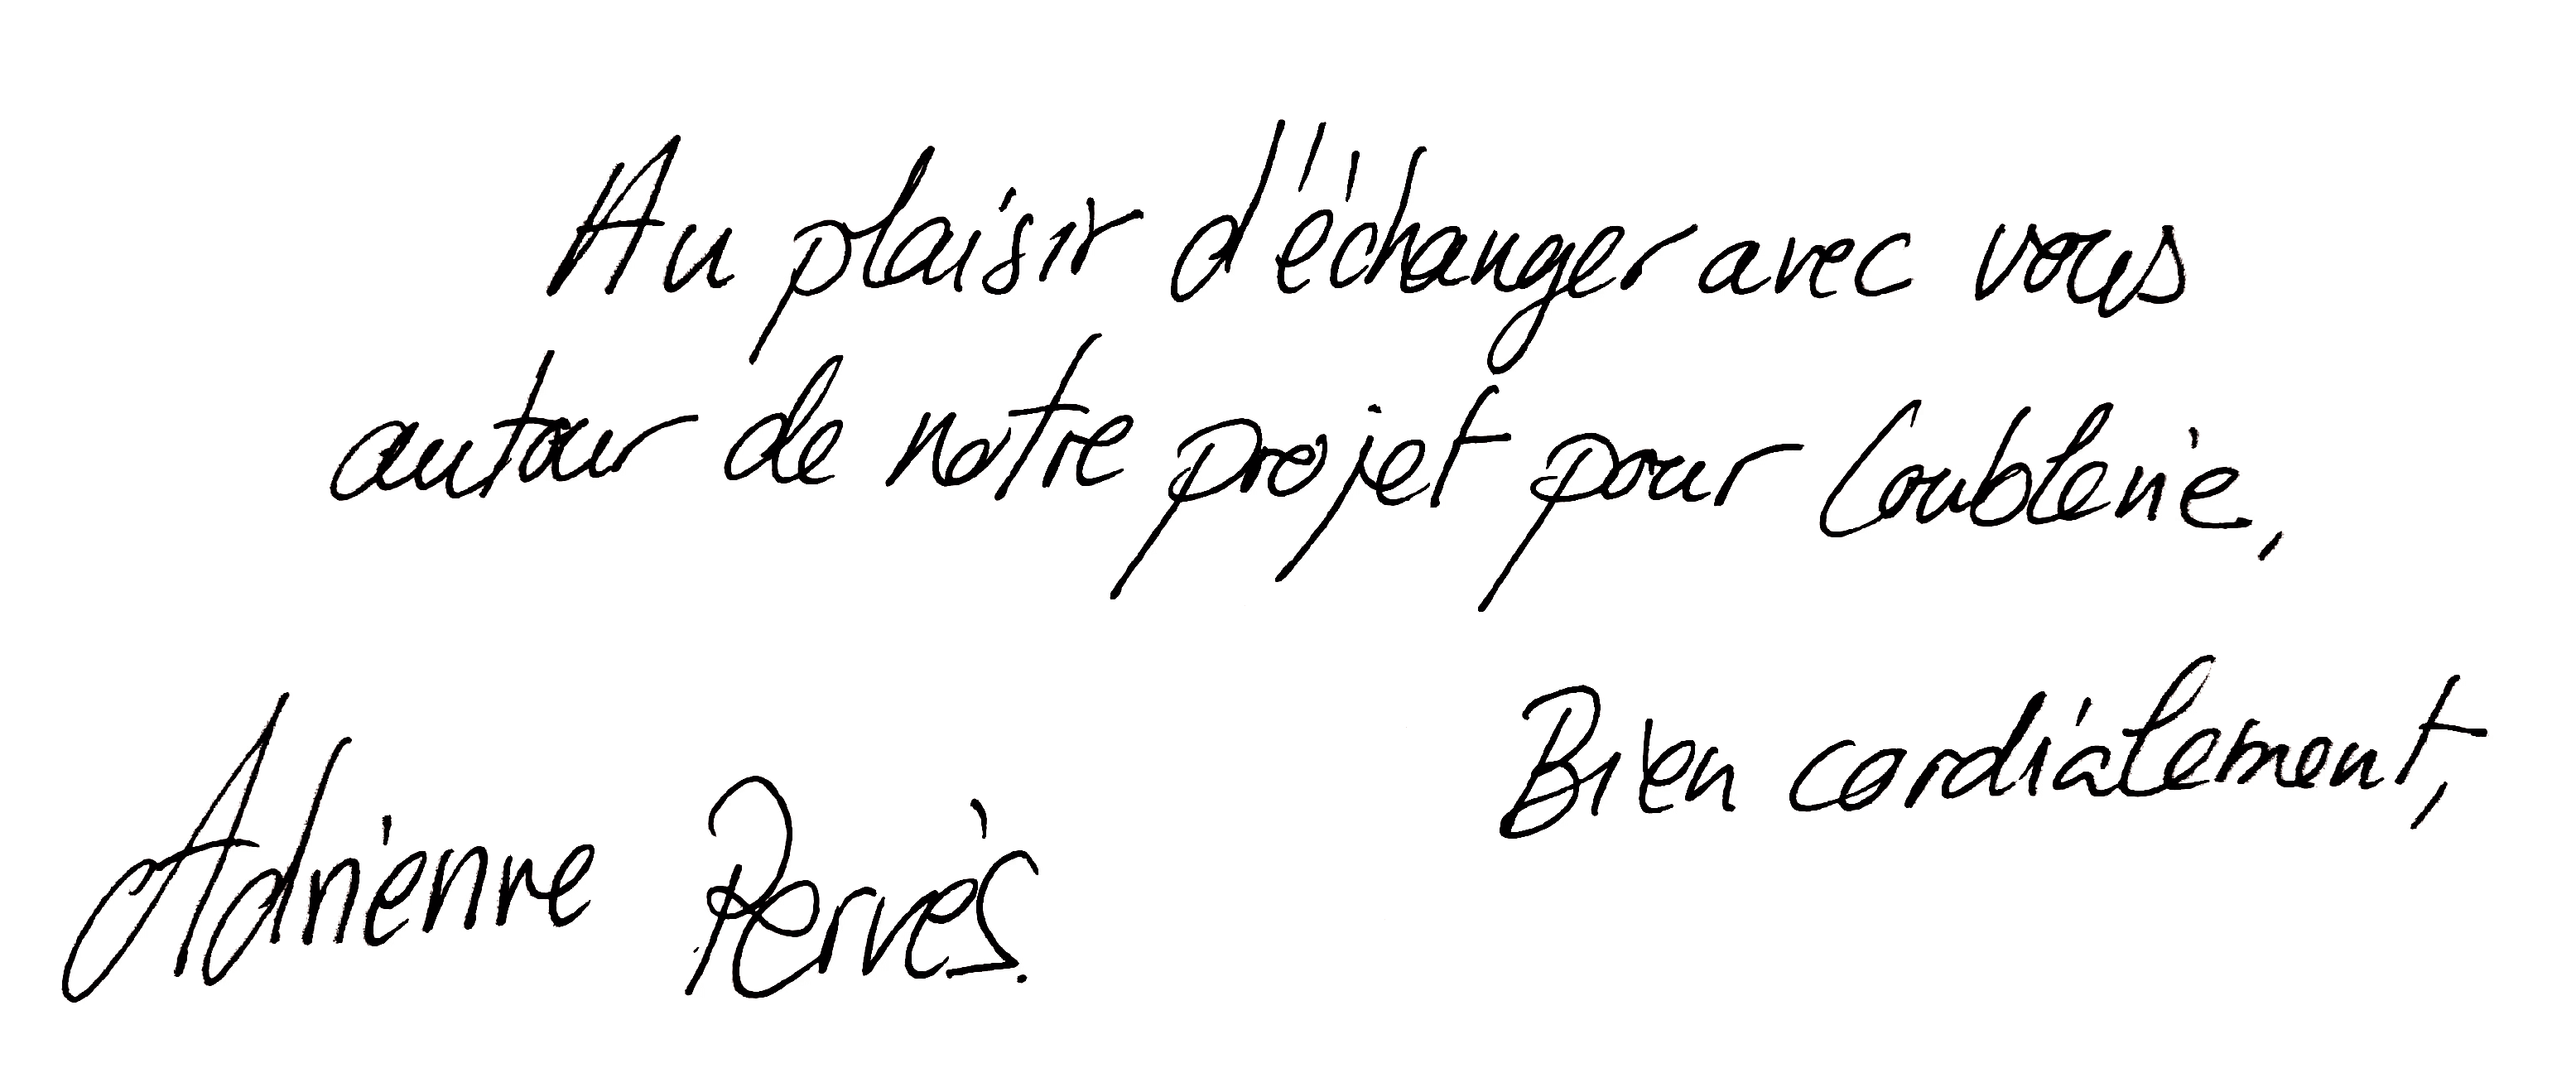 Au plaisir d'échanger avec vous
autour de notre projet pour Coublevie,
Bien cordialement,
Adrienne Pervès.